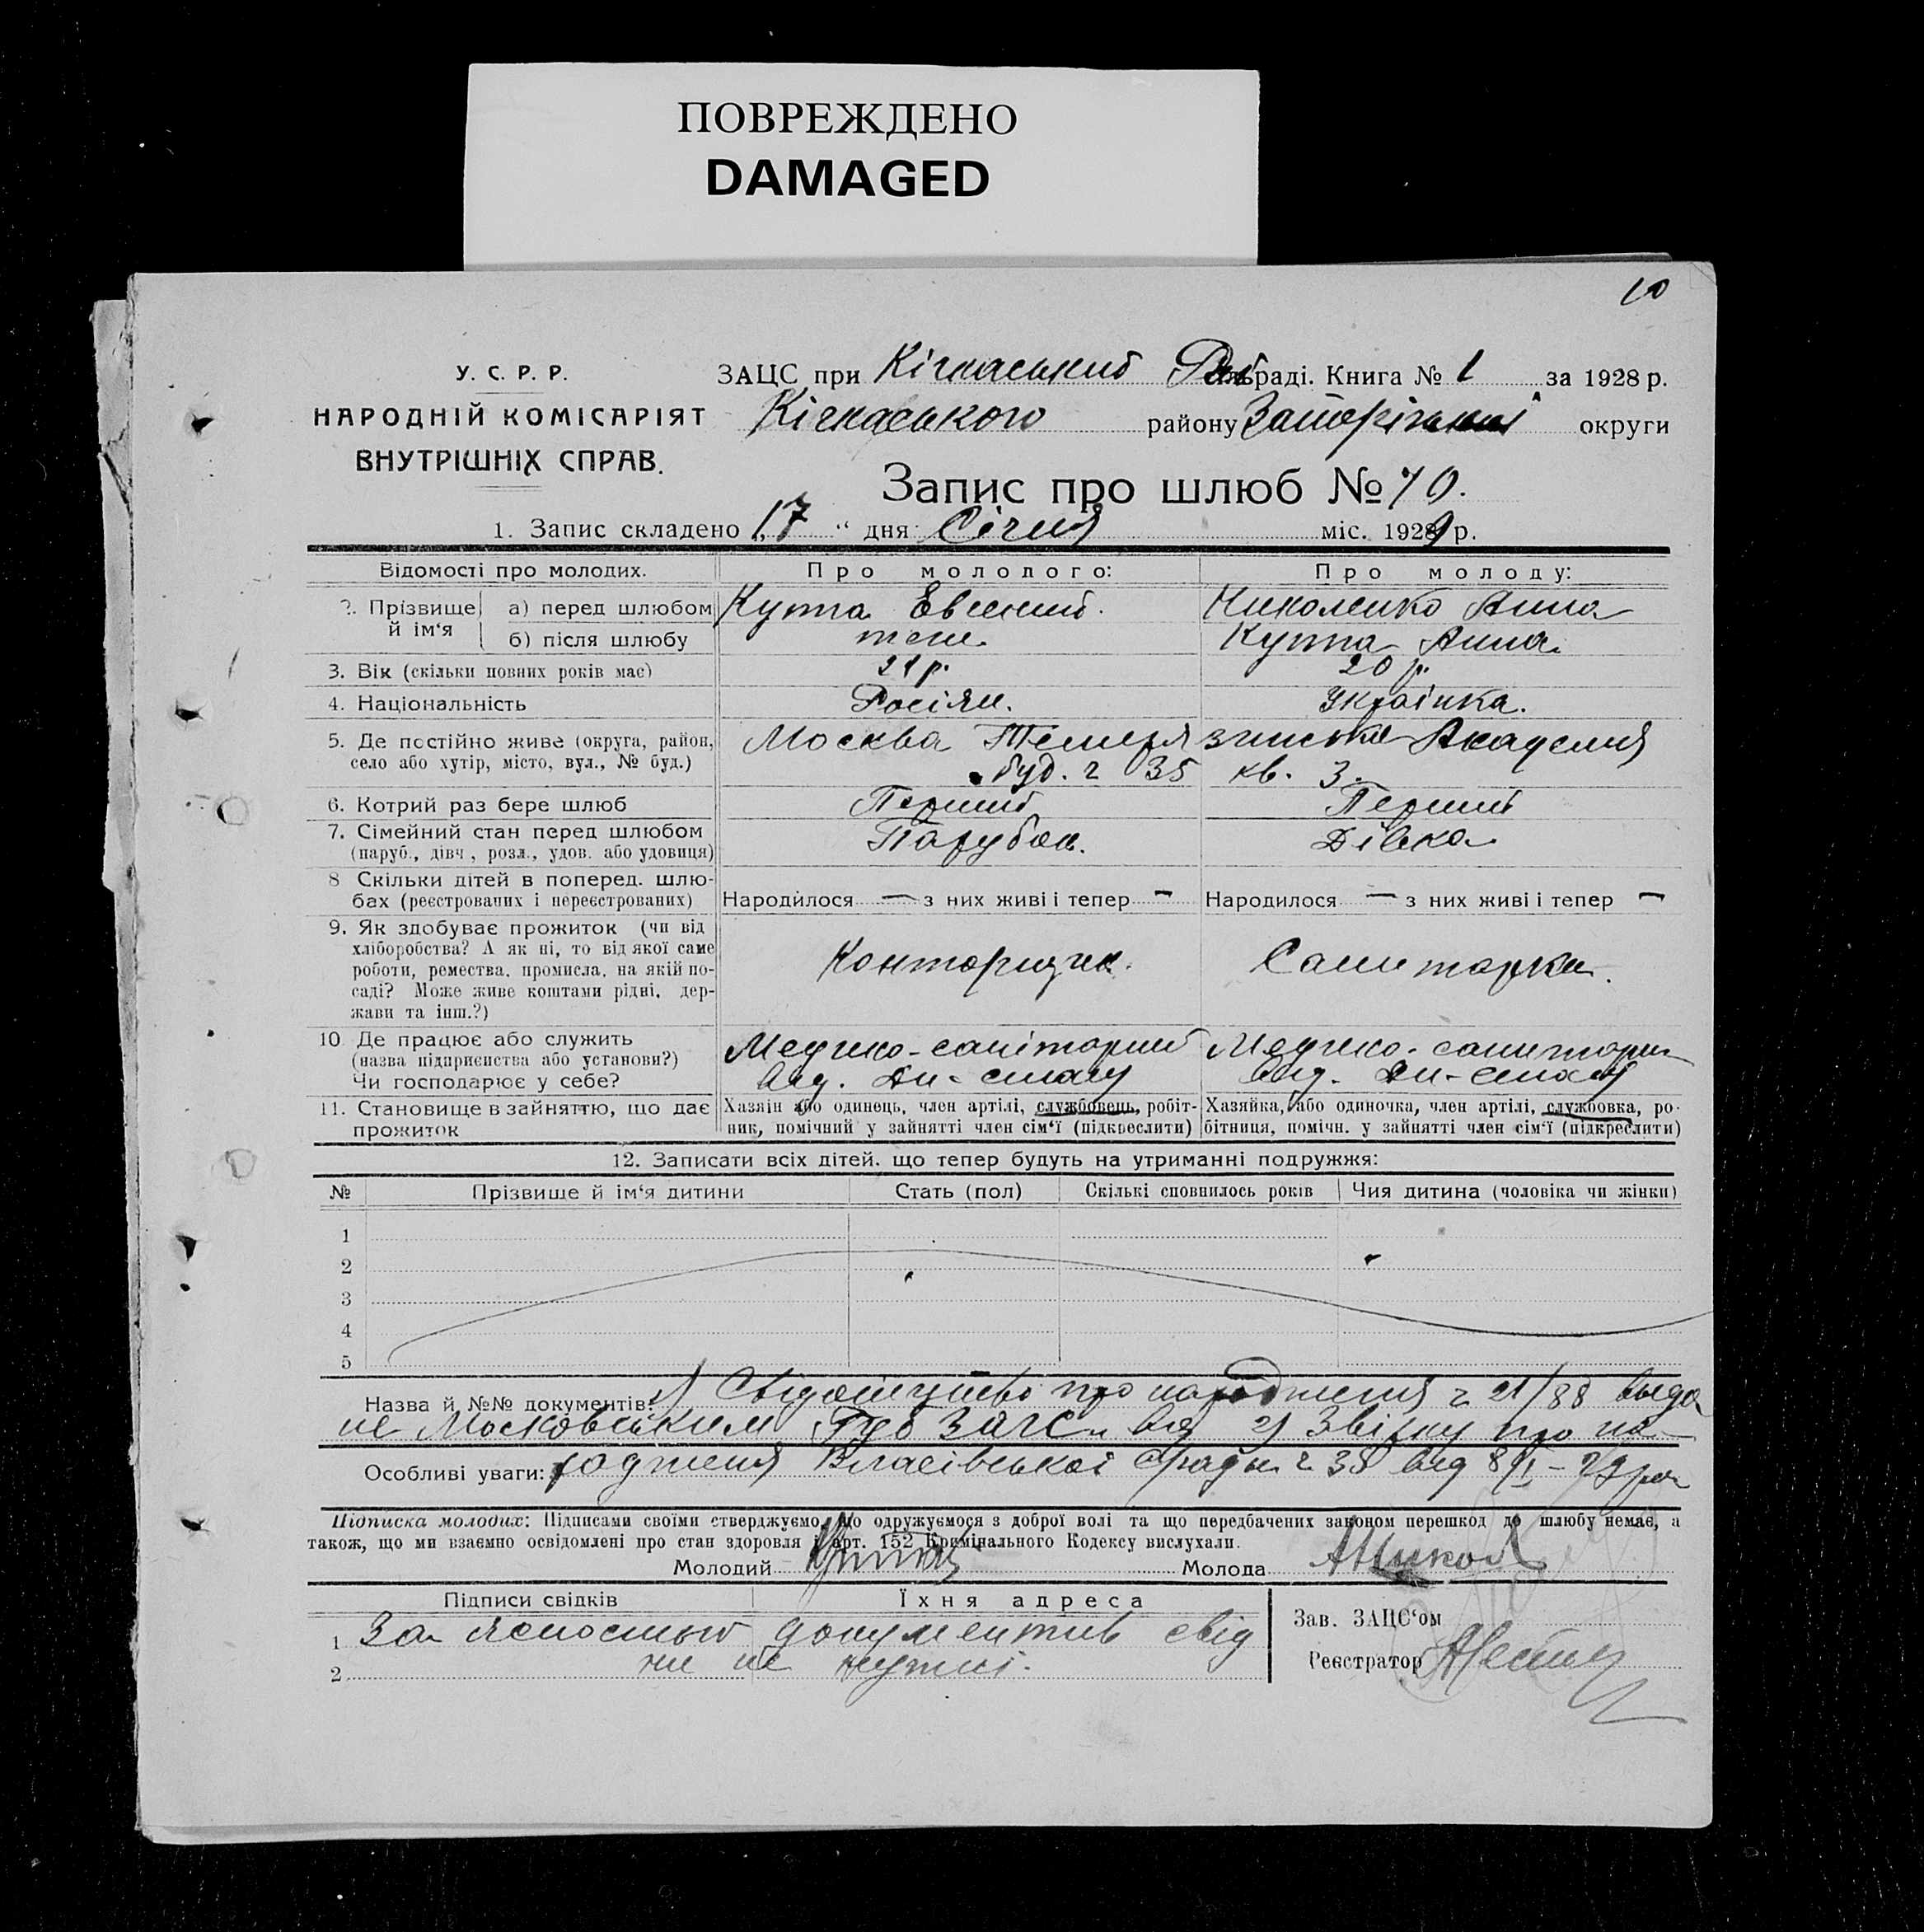 ПОВРЕЖДЕНО
DAMAGED
10
У. С. Р. Р.
НАРОДНІЙ КОМІСАРІЯТ
ВНУТРІШНІХ СПРАВ.
ЗАЦС при Кічкаський раді. Книга № 1 за 1928 р.
Кічкаського району Запоріжської округи
Запис про шлюб № 10.
1. Запис складено „17“ дня Січня міс. 1929 р.
Відомості про молодих. Про молодого: Про молоду:
2. Прізвище й ім‘я а) перед шлюбом Куппа Евгений. Николенко Анна
б) після шлюбу теж. Куппа Анна.
3. Вік (скільки повних років має) 21 р. 20 р.
4. Національність Росіян. Українка.
5. Де постійно живе (округа, район, село або хутір, місто, вул., № буд.) Москва Академия
буд. ч 35 кв. 3.
6. Котрий раз бере шлюб Перший Перший
7. Сімейний стан перед шлюбом Парубок. Дівка
(паруб., дівч., розл., удов. або удовиця)
8 Скільки дітей в поперед. шлю-
бах (реєстрованих і нереєстрованих) Народилося — з них живі і тепер — Народилося — з них живі і тепер —
9. Як здобуває прожиток (чи від
хліборобства? А як ні, то від якої саме
роботи, ремества, промисла, на якій по- Конторщик. Санитарка.
саді? Може живе коштами рідні, дер-
жави та інш.?)
10 Де працює або служить Медико-санітарний Медико-санитарн
(назва підприємства або установи?) Від. Дн-стану Від. Дн-стану
Чи господарює у себе?
11. Становище в зайняттю, що дає Хазяін або одинець, член артілі, службовець, робіт- Хазяйка, або одиночка, член артілі, службовка, ро-
прожиток ник, помічний у зайнятті член сім‘ї (підкреслити) бітниця, помічн. у зайнятті член сім‘ї (підкреслити)
12. Записати всіх дітей. що тепер будуть на утриманні подружжя:
№ Прізвище й ім‘я дитини Стать (пол) Скількі сповнилось років Чия дитина (чоловіка чи жінки)
1
2
3
4
5
Назва й №№ документів: 1) Свідоцтво про народження ч 21/88 выда
не Московським Губ ЗАГС 2) Звірку про на-
Особливі уваги: родження Власівської с/ради ч 38 від 8/I-29 р
Підписка молодих: Підписами своїми стверджуємо, що одружуємося з доброї волі та що передбачених законом перешкод до шлюбу немає, а
також, що ми взаємно освідомлені про стан здоровля і арт. 152 Кримінального Кодексу вислухали.
Молодий Молода АНикол
Підписи свідків Їхня адреса
1 За ясностью документів свід
2 ки не нужні.
Зав. ЗАЦС‘ом
Реєстратор